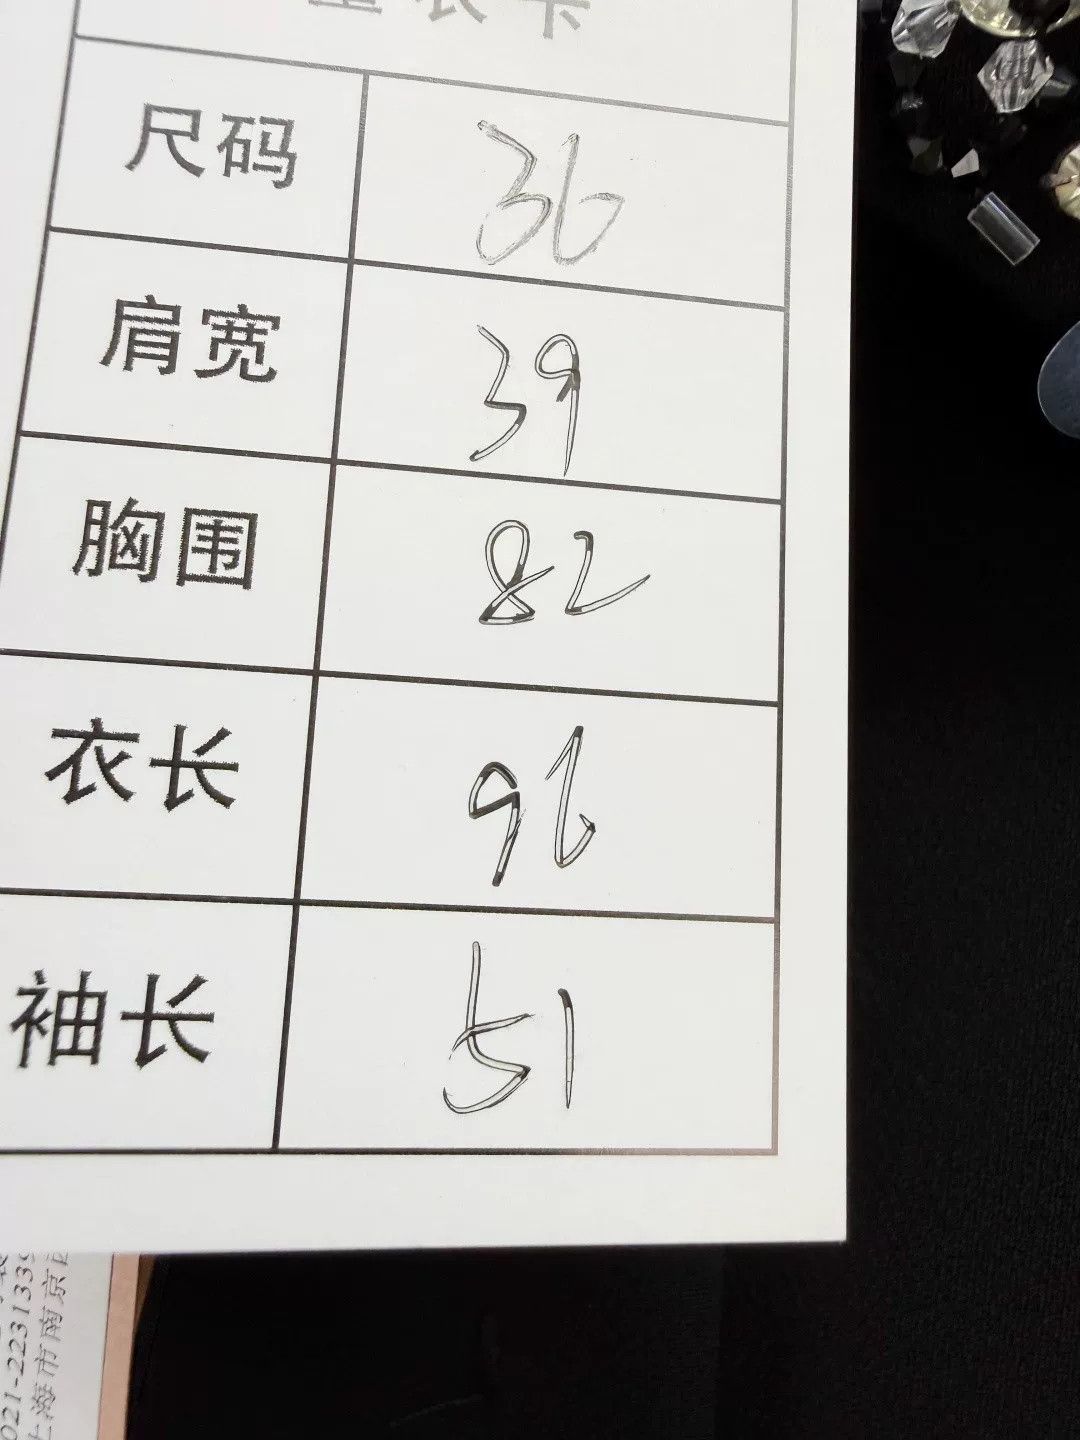 量衣卡
尺码 36
肩宽 39
胸围 82
衣长 96
袖长 51
021-2231339
上海市南京